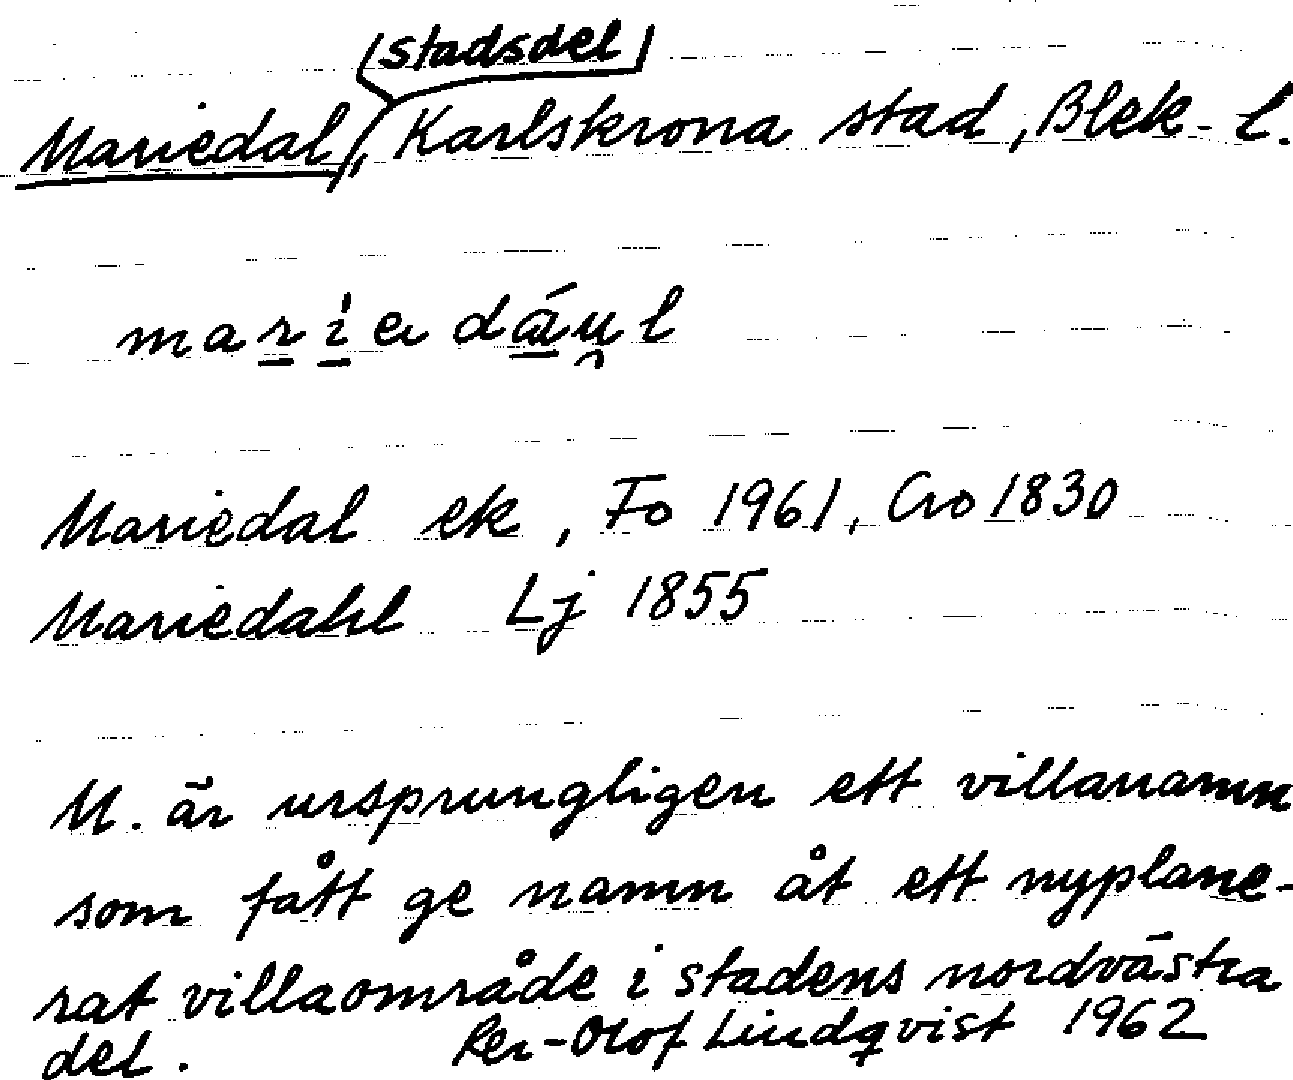 stadsdel
Mariedal, Karlskrona stad, Blek. l.
Mariedal ek, Fo 1961, Cro 1830
Mariedahl Lj 1855
M. är ursprungligen ett villanamn
som fått ge namn åt ett nyplane-
rat villaområde i stadens nordvästra
del. Per-Olof Lindqvist 1962